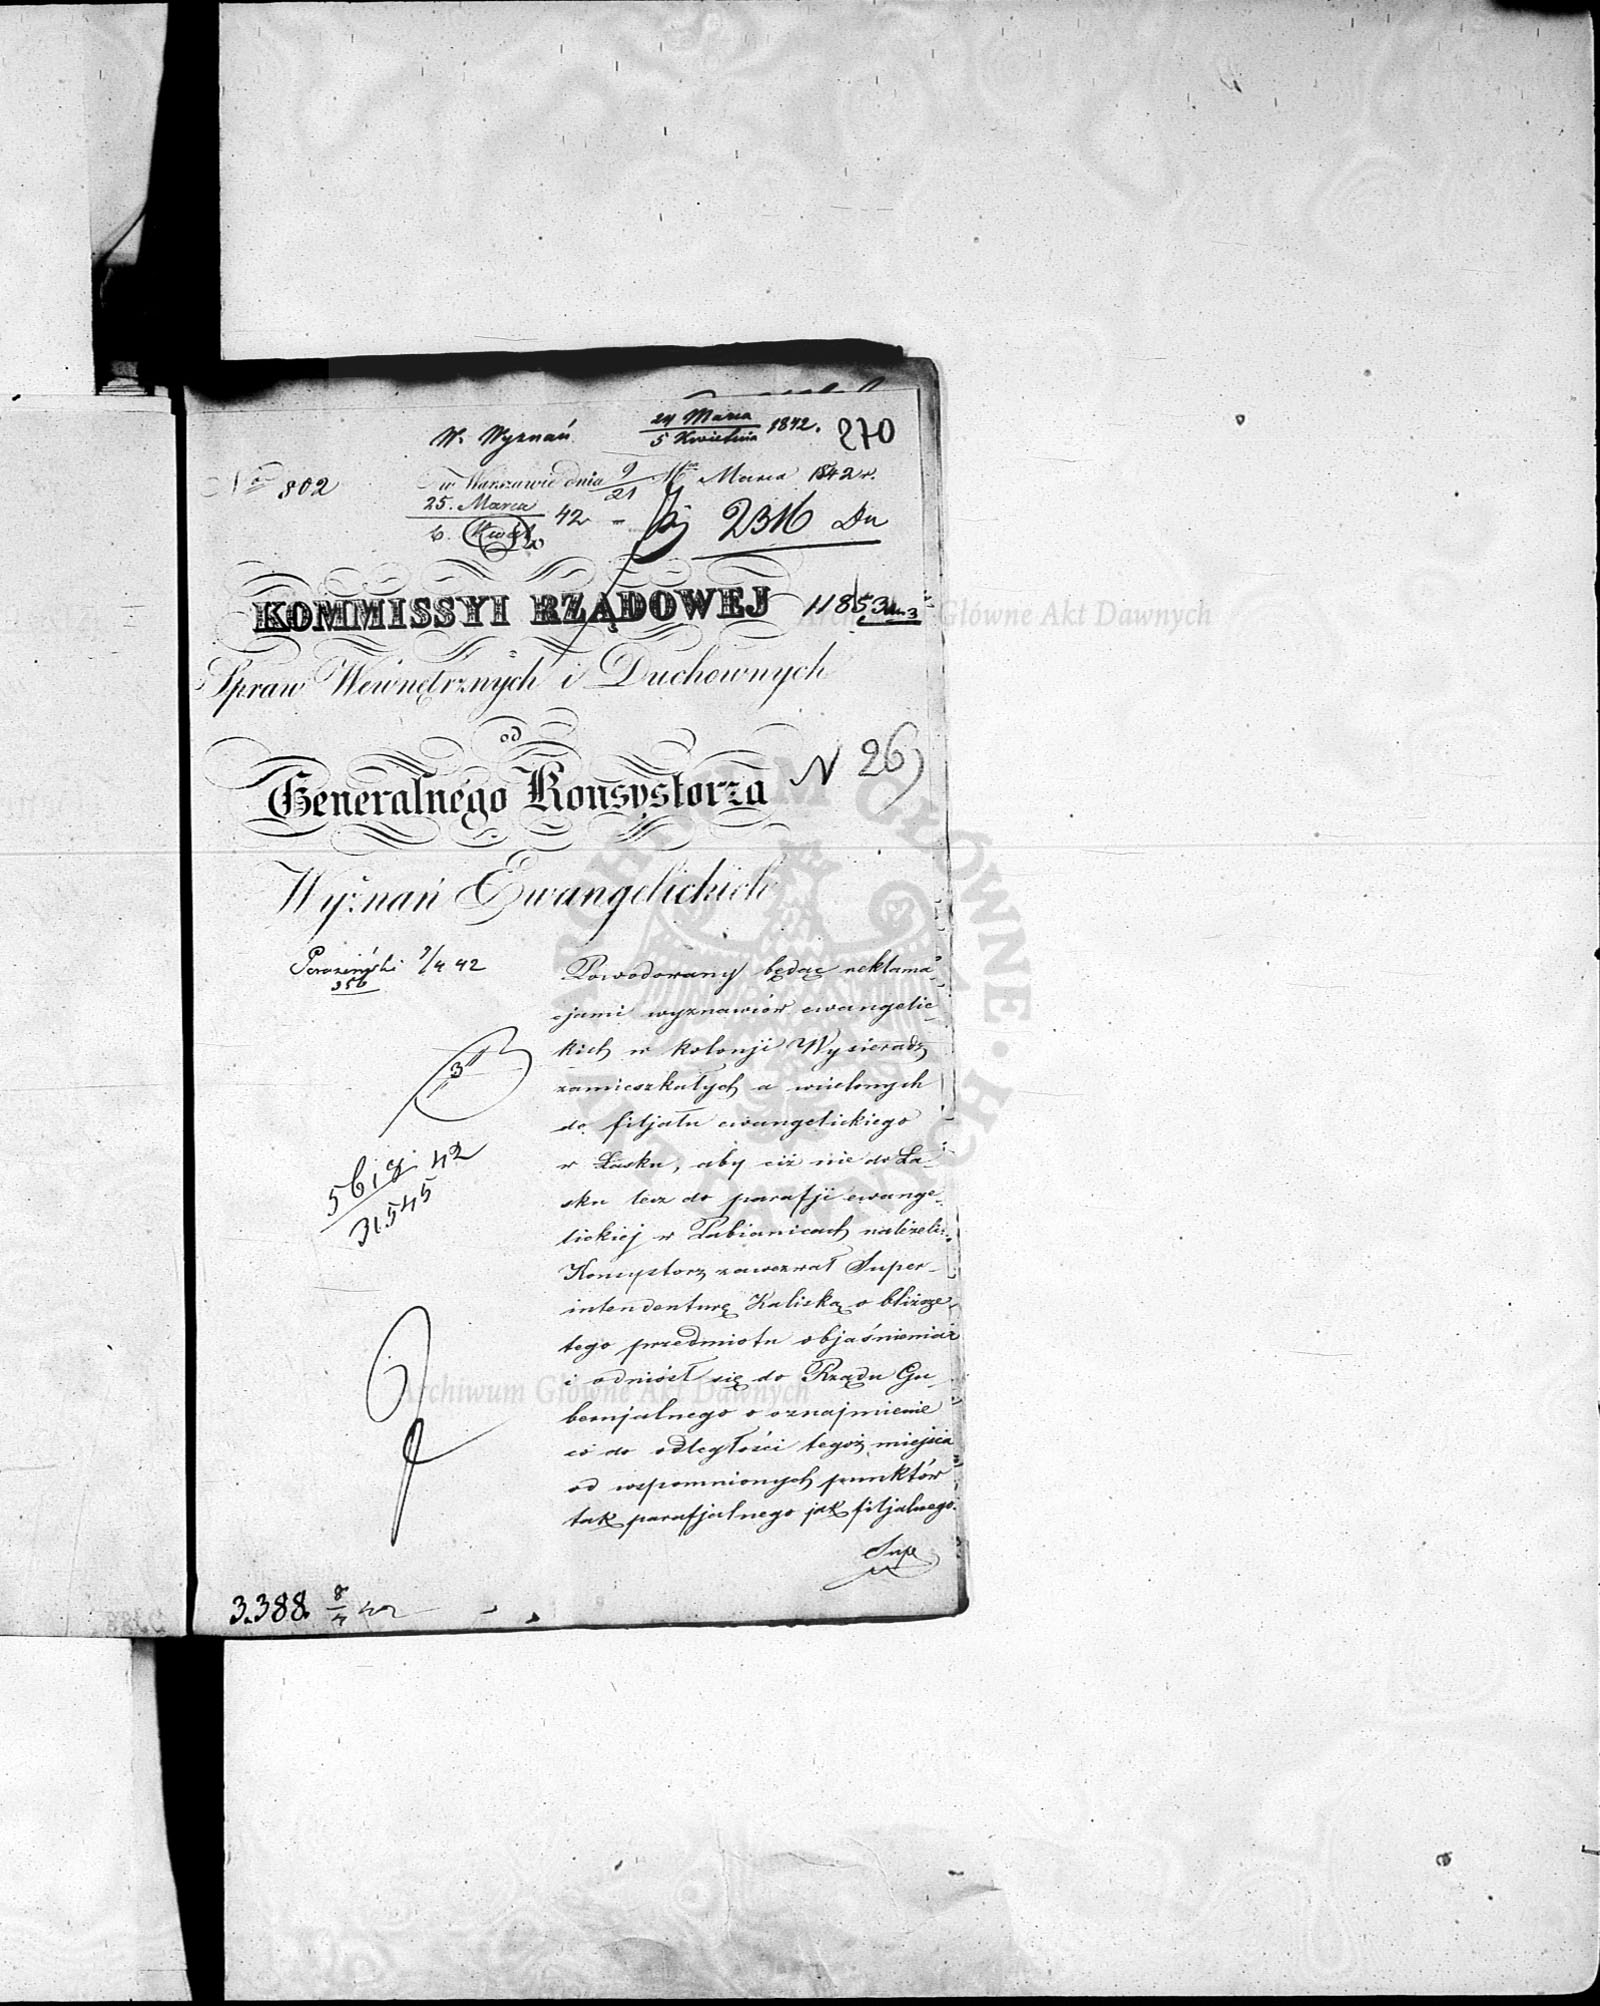 W. Wyznań 24 Marca / 5 Kwietnia 1842. 270
No 802 w Warszawie dnia 9/21 Mca Marca 1842 r.
25. Marca / 6. Kwiet 42 2316 Du
KOMMISSYI RZĄDOWEJ 11853
Spraw Wewnętrznych i Duchownych
od
Generalnégo Konsystorza N 26
Wyznań Ewangelickich
9/4 42
356
3
Powodowany będąc reklama-
cjami wyznawców ewangelic-
kich w kolonji Wysieradz
zamieszkałych a wcielonych
do filjału ewangelickiego
w Łasku, aby ciż nie do Ła-
sku lecz do parafji ewange-
lickiej w Pabianicach należeli,
Konsystorz zawezwał Super-
intendenturę Kaliską o bliższe
tego przedmiotu objaśnienia
i odniósł się do Rządu Gu-
bernjalnego o oznajmienie
co do odległości tegoż miejsca
od wspomnionych punktów
tak parafjalnego jak filjalnego.
Supe
31.545
3.388. 8/4 42
Archiwum Główne Akt Dawnych
Archiwum Główne Akt Dawnych
ARCHIWUM GŁÓWNE AKT DAWNYCH